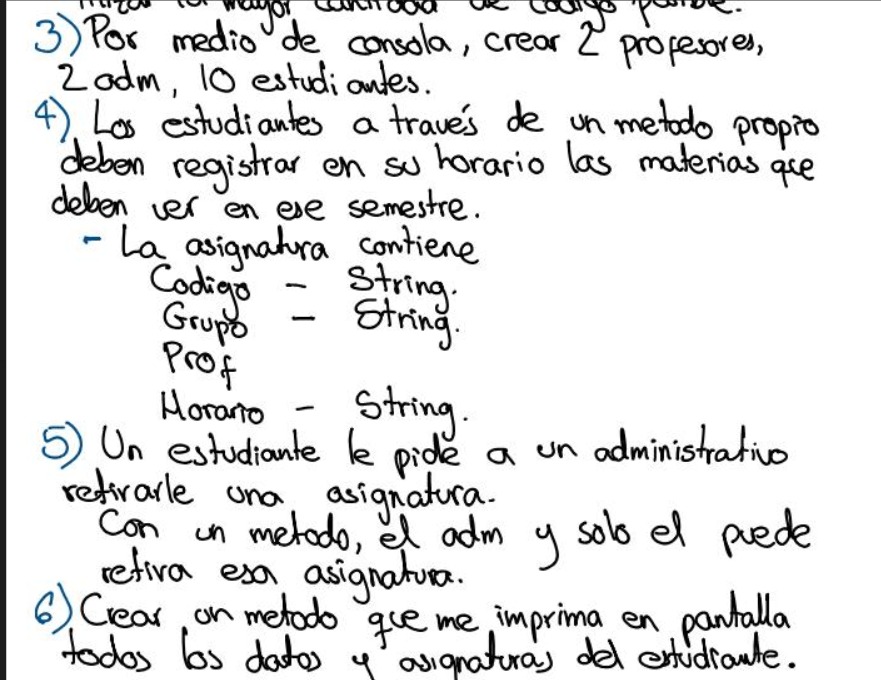 mayor cantidad de codigo posible.
3) Por medio de consola, crear 2 profesores,
2 adm, 10 estudiantes.
4) Los estudiantes a través de un metodo propio
deben registrar en su horario las materias que
deben ver en ese semestre.
- La asignatura contiene
Codigo - String.
Grupo - String.
Prof
Horario - String.
5) Un estudiante le pide a un administrativo
retirarle una asignatura.
Con un metodo, el adm y solo el puede
retira esa asignatura.
6) Crear un metodo que me imprima en pantalla
todos los datos y asignaturas del estudiante.